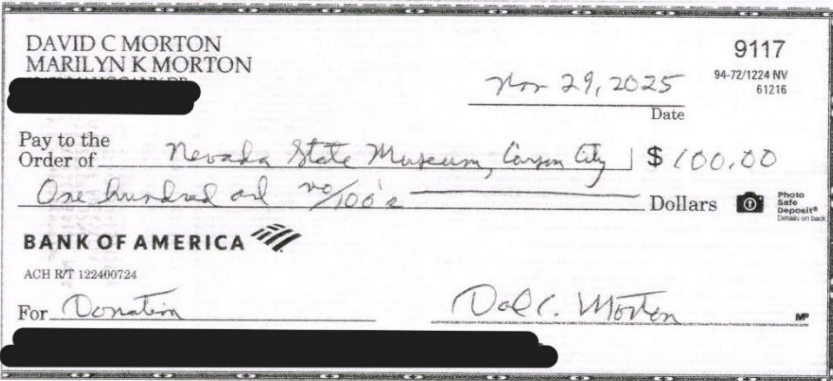 DAVID C MORTON
MARILYN K MORTON
9117
94-72/1224 NV
61216
Nov 29, 2025
Date
Pay to the
Order of Nevada State Museum, Carson City $ 100.00
One hundred and no/100's Dollars
Photo
Safe
Deposit®
Details on back
BANK OF AMERICA
ACH R/T 122400724
For Donation
Dal C. Morton
MP